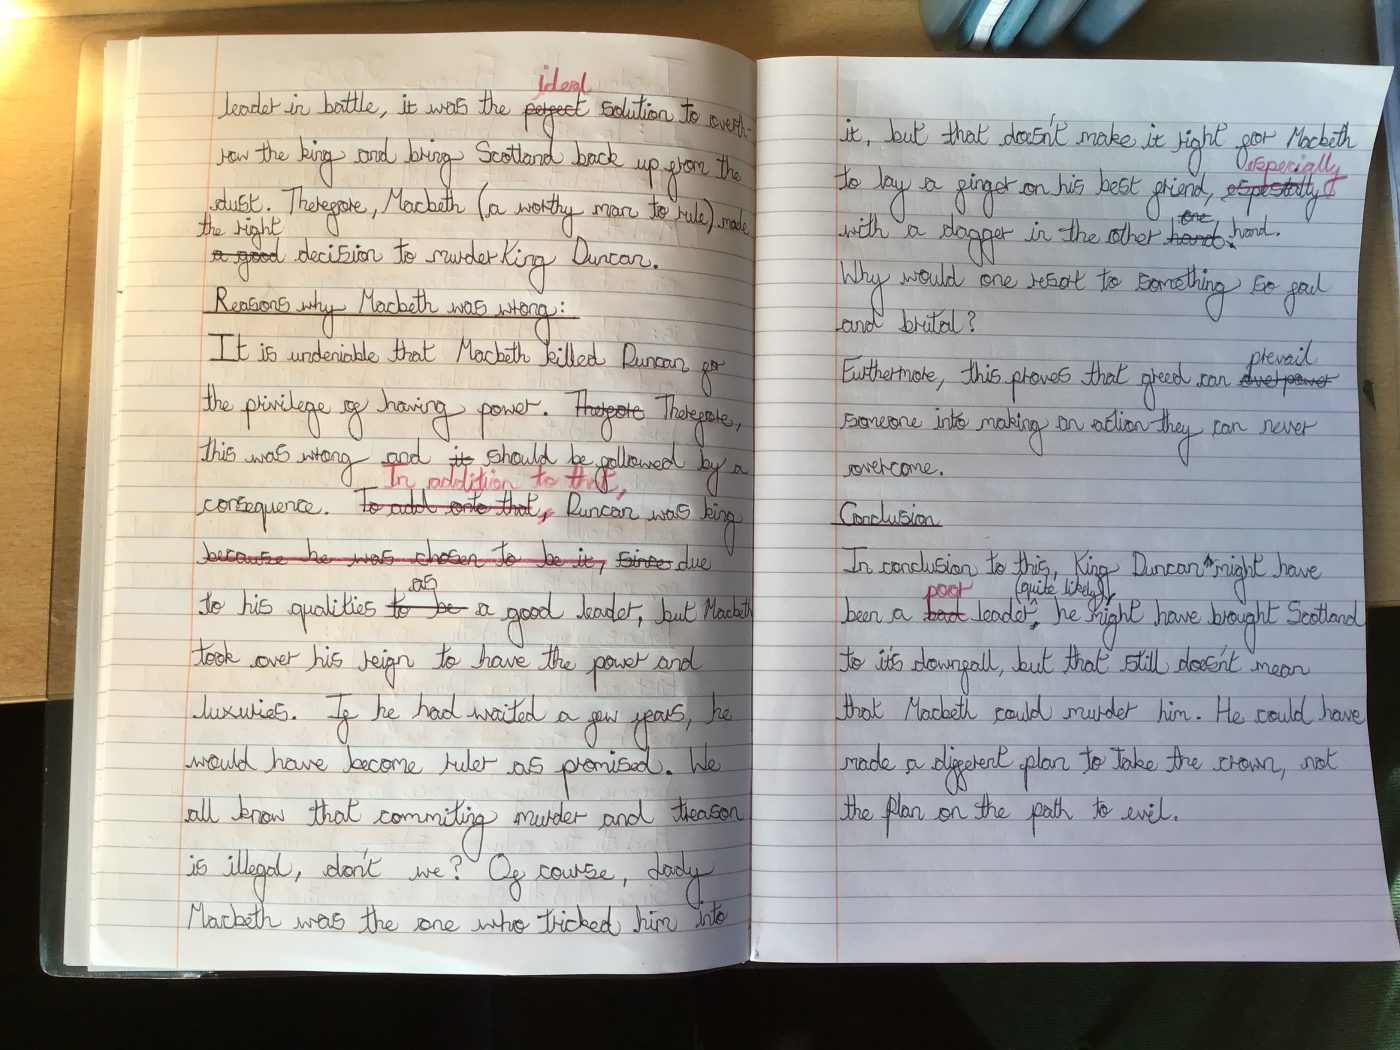 ideal
leader in battle, it was the perfect solution to overth-
row the king and bring Scotland back up from the
dust. Therefore, Macbeth (a worthy man to rule) made
the right
a good decision to murder King Duncan.
Reasons why Macbeth was wrong:
It is undeniable that Macbeth killed Duncan for
the privilege of having power. Therefore Therefore,
this was wrong and it should be followed by a
In addition to that,
consequence. To add onto that, Duncan was king
because he was chosen to be it, since due
as
to his qualities to be a good leader, but Macbeth
took over his reign to have the power and
luxuries. If he had waited a few years, he
would have become ruler as promised. We
all know that commiting murder and treason
is illegal, don't we? Of course, Lady
Macbeth was the one who tricked him into
it, but that doesn't make it right for Macbeth
especially
to lay a finger on his best friend, espestally
one,
with a dagger in the other hand. hand.
Why would one resort to something so foul
and brutal?
prevail
Furthermore, this proves that greed can overpower
someone into making an action they can never
overcome.
Conclusion
In conclusion to this, King Duncan might have
poor (quite likely)
been a bad leader, he might have brought Scotland
to it's downfall, but that still doesn't mean
that Macbeth could murder him. He could have
made a different plan to take the crown, not
the plan on the path to evil.